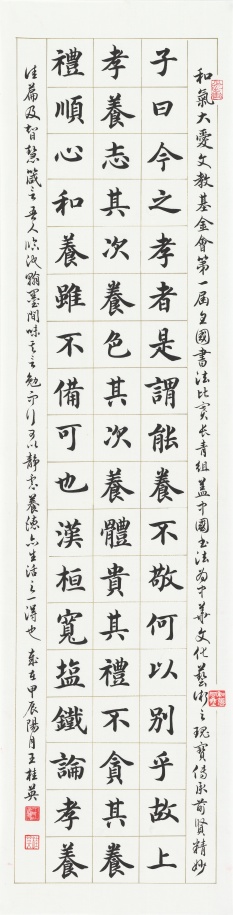 和氣大愛文教基金會第一屆全國書法比賽長青組蓋中國書法為中華文化藝術之瑰寶傳承前賢精妙
子曰今之孝者是謂能養不敬何以別乎故上
孝養志其次養色其次養體貴其禮不貪其養
禮順心和養雖不備可也漢桓寬塩鐵論孝養
佳篇及智慧箴言吾人臨池翰墨間味其言勉而行可以靜養德亦生活之一得也 歲在甲辰陽月王桂英